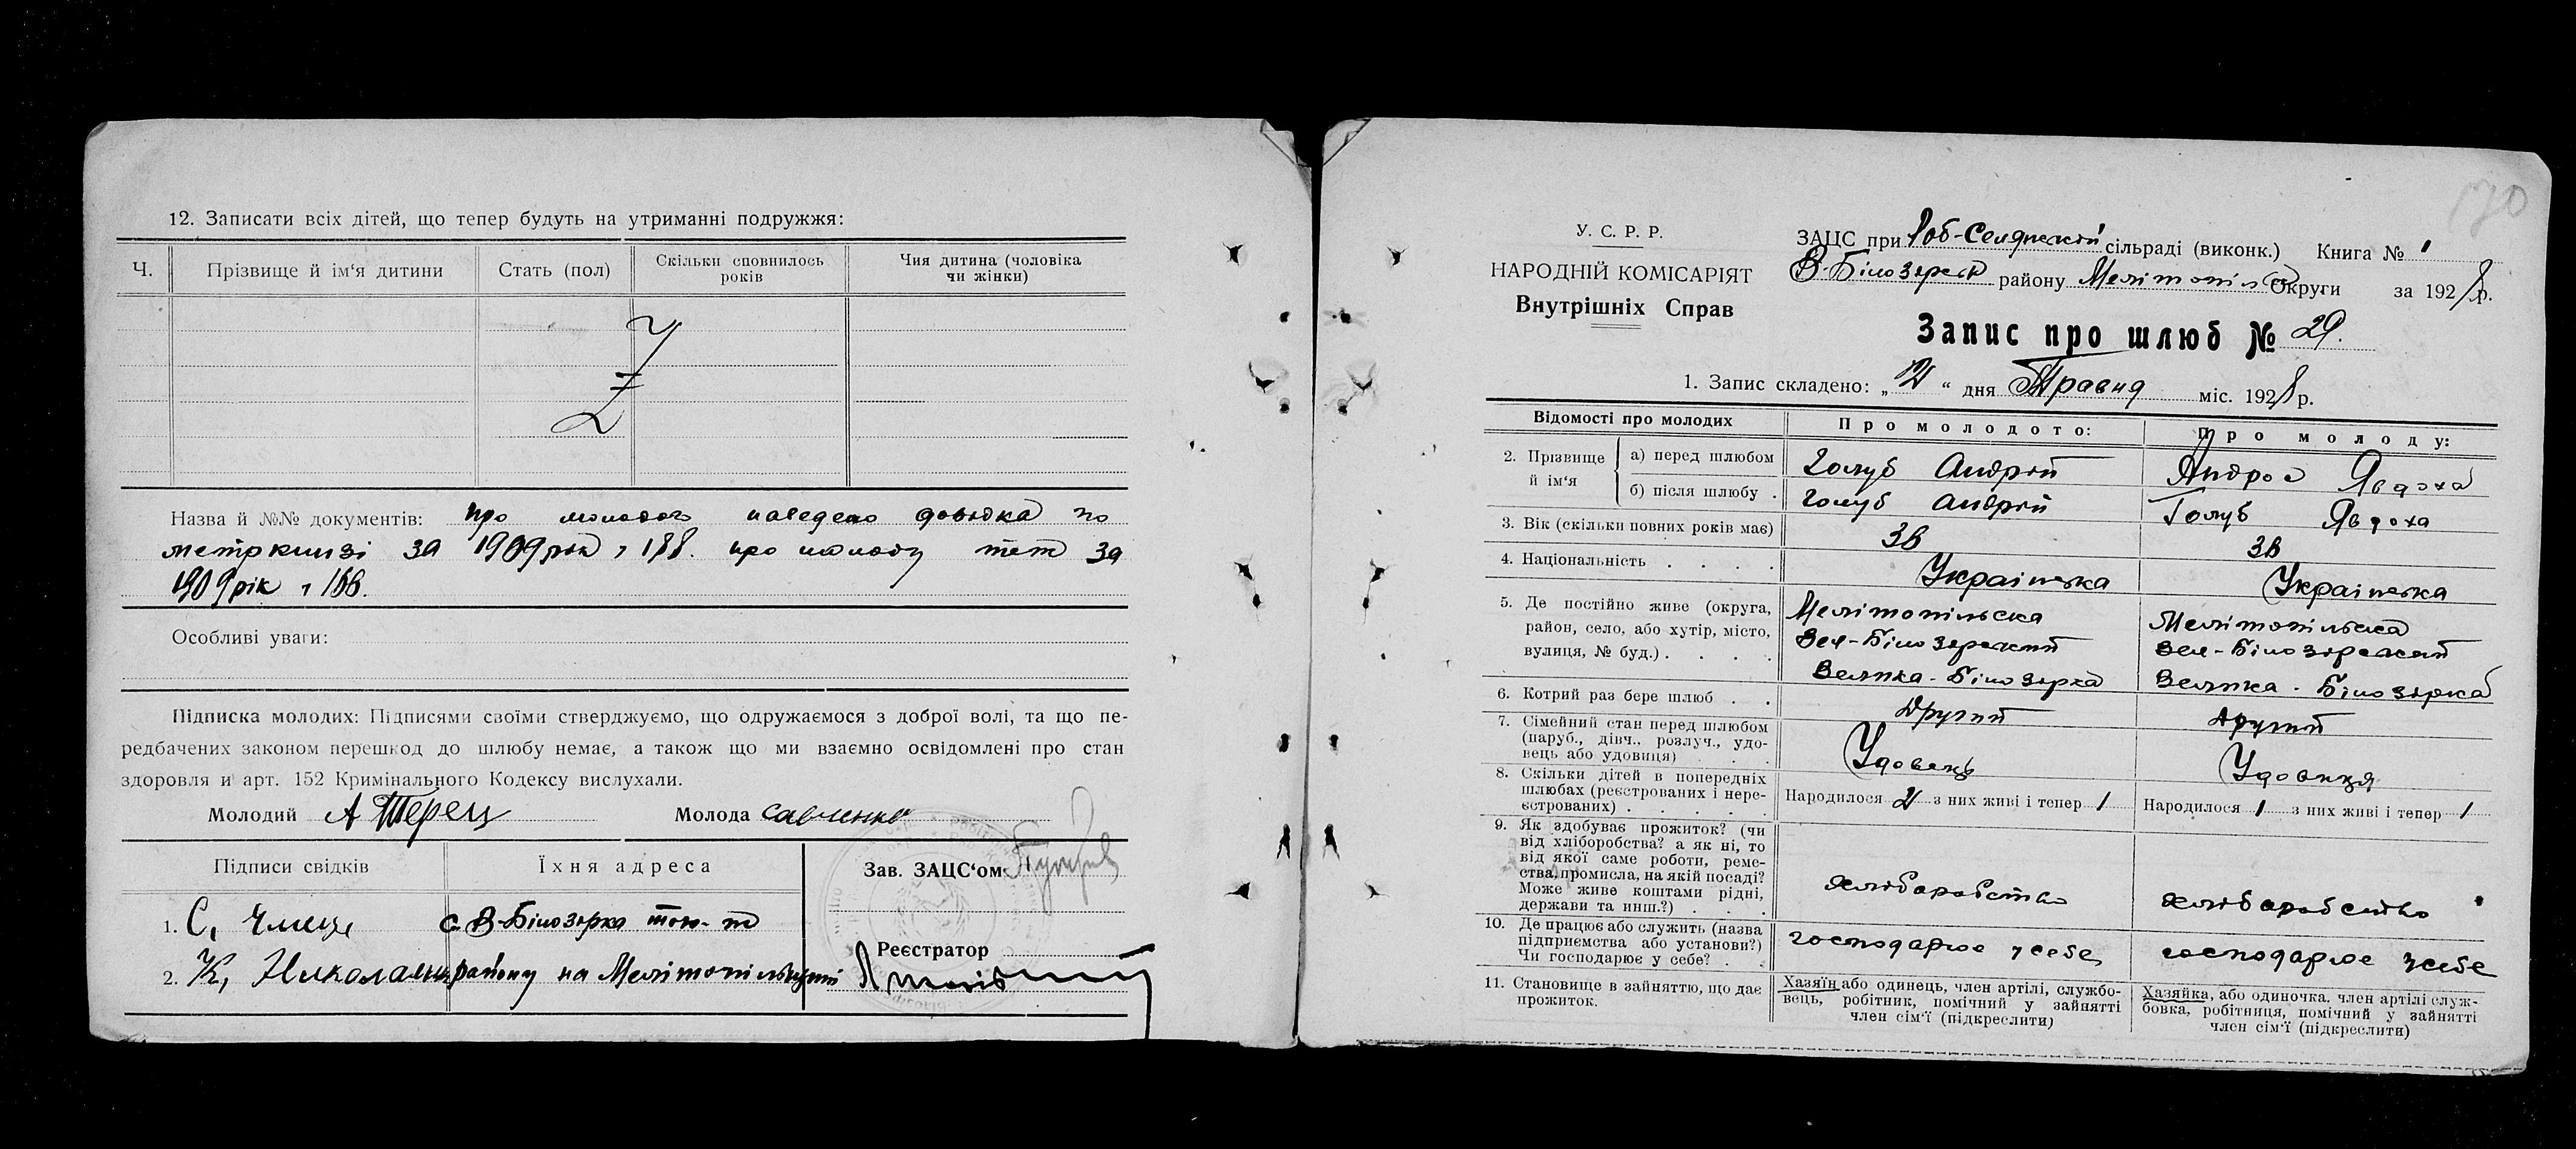 12. Записати всіх дітей, що тепер будуть на утриманні подружжя:
Ч.
Прізвище й ім'я дитини
Стать (пол)
Скільки сповнилось
років
Чия дитина (чоловіка
чи жінки)
Z
Назва й №№ документів: про молодого наведено довідка по
метркнизі за 1909 рік 188. про молоду теж за
1909 рік
Особливі уваги:
Підписка молодих: Підписями своїми стверджуємо, що одружаємося з доброї волі, та що пе-
редбачених законом перешкод до шлюбу немає, а також що ми взаємно освідомлені про стан
здоровля и арт. 152 Кримінального Кодексу вислухали.
Молодий А Терец Молода Савченко
Підписи свідків
Їхня адреса
Зав. ЗАЦС'ом
1. С,
с. В-Білозірка
2. К,
району на Мелітопільщині
Реєстратор
170
У. С. Р. Р.
НАРОДНІЙ КОМІСАРІЯТ
Внутрішніх Справ
ЗАЦС при Роб-Селянській сільраді (виконк.) Книга № 1
В-Білозірськ району Мелітопільс Округи за 1928 р.
Запис про шлюб № 29.
1. Запис складено: „12“ дня Травня міс. 1928 р.
Відомості про молодих
Про молодого:
Про молоду:
2. Прізвище й ім'я
а) перед шлюбом
Голуб Андрій
Явдоха
б) після шлюбу
Голуб Андрій
Голуб Явдоха
3. Вік (скільки повних років має)
4. Національність
Українська
Українська
5. Де постійно живе (округа,
район, село, або хутір, місто,
вулиця, № буд.)
Мелітопільска
Вел-Білозірский
Велика-Білозірка
Мелітопільска
Вел-Білозірский
Велика-Білозірка
6. Котрий раз бере шлюб
Другий
Другий
7. Сімейний стан перед шлюбом
(паруб., дівч., розлуч., удо-
вець або удовиця)
Удовець
Удовиця
8. Скільки дітей в попередніх
шлюбах (реєстрованих і нере-
єстрованих)
Народилося 2 з них живі і тепер 1
Народилося 1 з них живі і тепер 1
9. Як здобуває прожиток? (чи
від хліборобства? а як ні, то
від якої саме роботи, реме-
ства, промисла, на якій посаді?
Може живе коштами рідні,
держави та инш.?)
хліборобство
хліборобство
10. Де працює або служить (назва
підприємства або установи?)
Чи господарює у себе?
господарює у себе
господарює у себе
11. Становище в зайняттю, що дає
прожиток.
Хазяїн або одинець, член артілі, службо-
вець, робітник, помічний у зайнятті
член сім'ї (підкреслити)
Хазяйка, або одиночка, член артілі служ-
бовка, робітниця, помічний у зайнятті
член сім'ї (підкреслити)